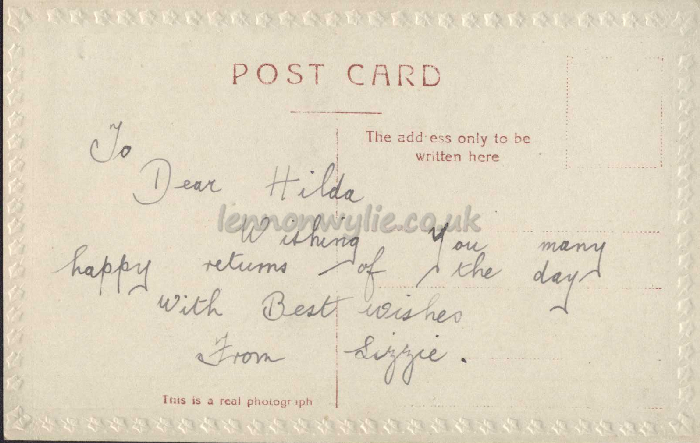 POST CARD
The address only to be
written here
To
Dear Hilda
lennonwylie.co.uk
Wishing You many
happy returns of the day
With Best wishes
From Lizzie.
This is a real photograph